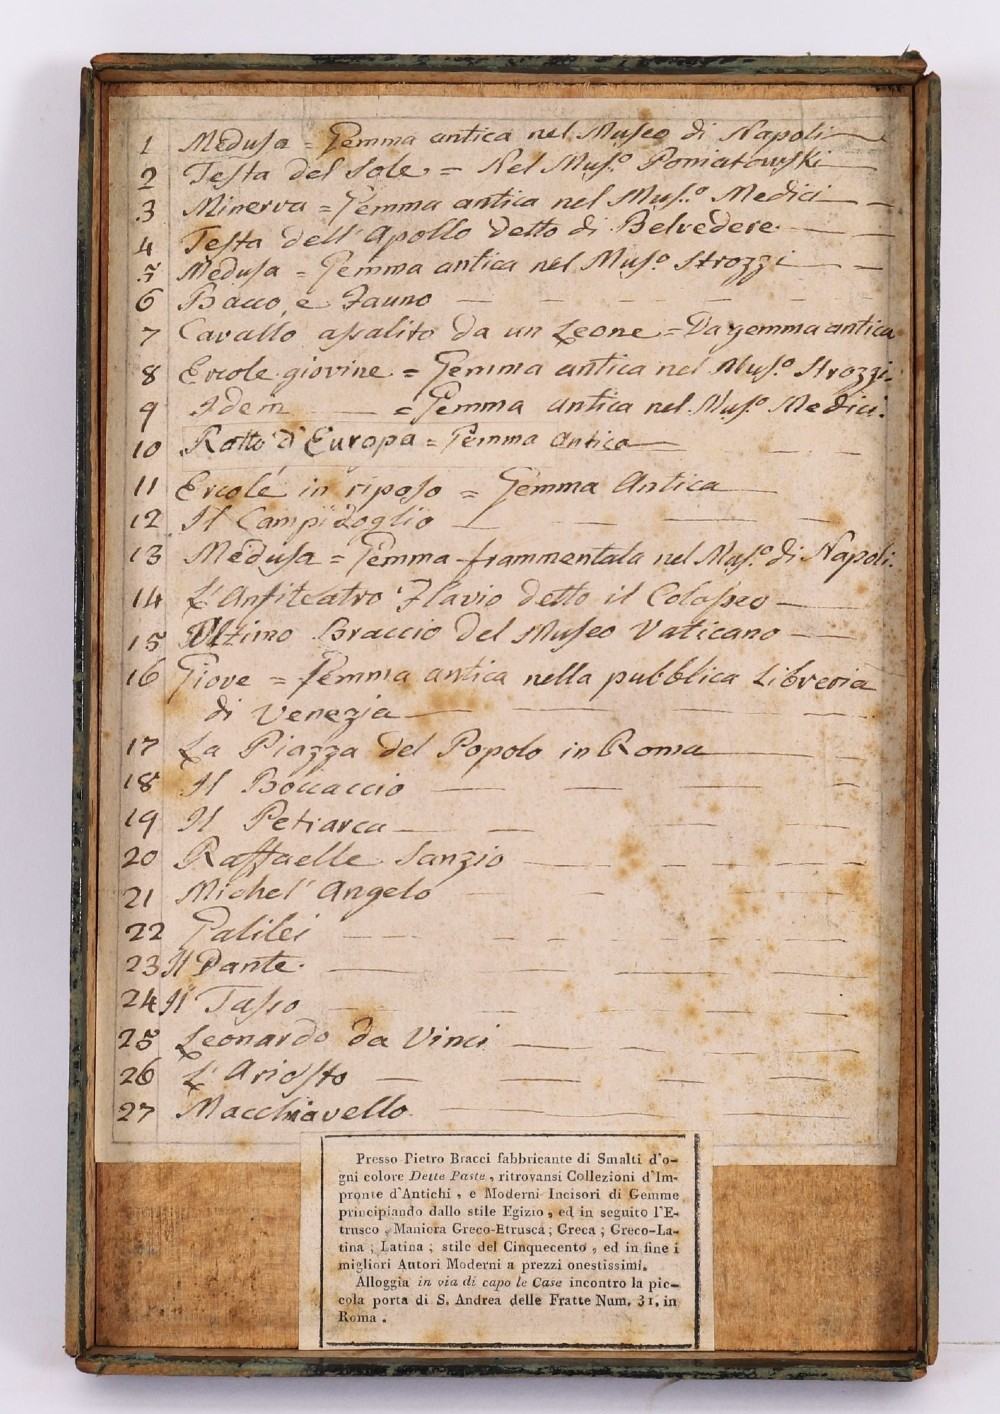 1 Medusa = Gemma antica nel Museo di Napoli
2 Testa del Sole = Nel Mus.º Poniatowski
3 Minerva = Gemma antica nel Mus.º Medici
4 Testa dell'Apollo detto di Belvedere
5 Medusa = Gemma antica nel Mus.º Strozzi
6 Bacco, e Fauno
7 Cavallo assalito da un Leone = Da gemma antica
8 Ercole giovine = Gemma antica nel Mus.º Strozzi.
9 Idem = Gemma antica nel Mus.º Medici.
10 Ratto d'Europa = Gemma Antica
11 Ercole in riposo = Gemma Antica
12 Il Campidoglio
13 Medusa = Gemma frammentata nel Mus.º di Napoli.
14 L'Anfiteatro Flavio detto il Colosseo
15 Ultimo Braccio del Museo Vaticano
16 Giove = Gemma antica nella pubblica Libreria
di Venezia
17 La Piazza del Popolo in Roma
18 Il Boccaccio
19 Il Petrarca
20 Raffaelle Sanzio
21 Michel'Angelo
22 Galilei
23 Il Dante.
24 Il Tasso
25 Leonardo da Vinci
26 L'Ariosto
27 Macchiavello
Presso Pietro Bracci fabbricante di Smalti d'o-
gni colore Dette Paste, ritrovansi Collezioni d'Im-
pronte d'Antichi, e Moderni Incisori di Gemme
principiando dallo stile Egizio, ed in seguito l'E-
trusco, Maniera Greco-Etrusca; Greca; Greco-La-
tina; Latina; stile del Cinquecento, ed in fine i
migliori Autori Moderni a prezzi onestissimi.
Alloggia in via di capo le Case incontro la pic-
cola porta di S. Andrea delle Fratte Num. 31. in
Roma.